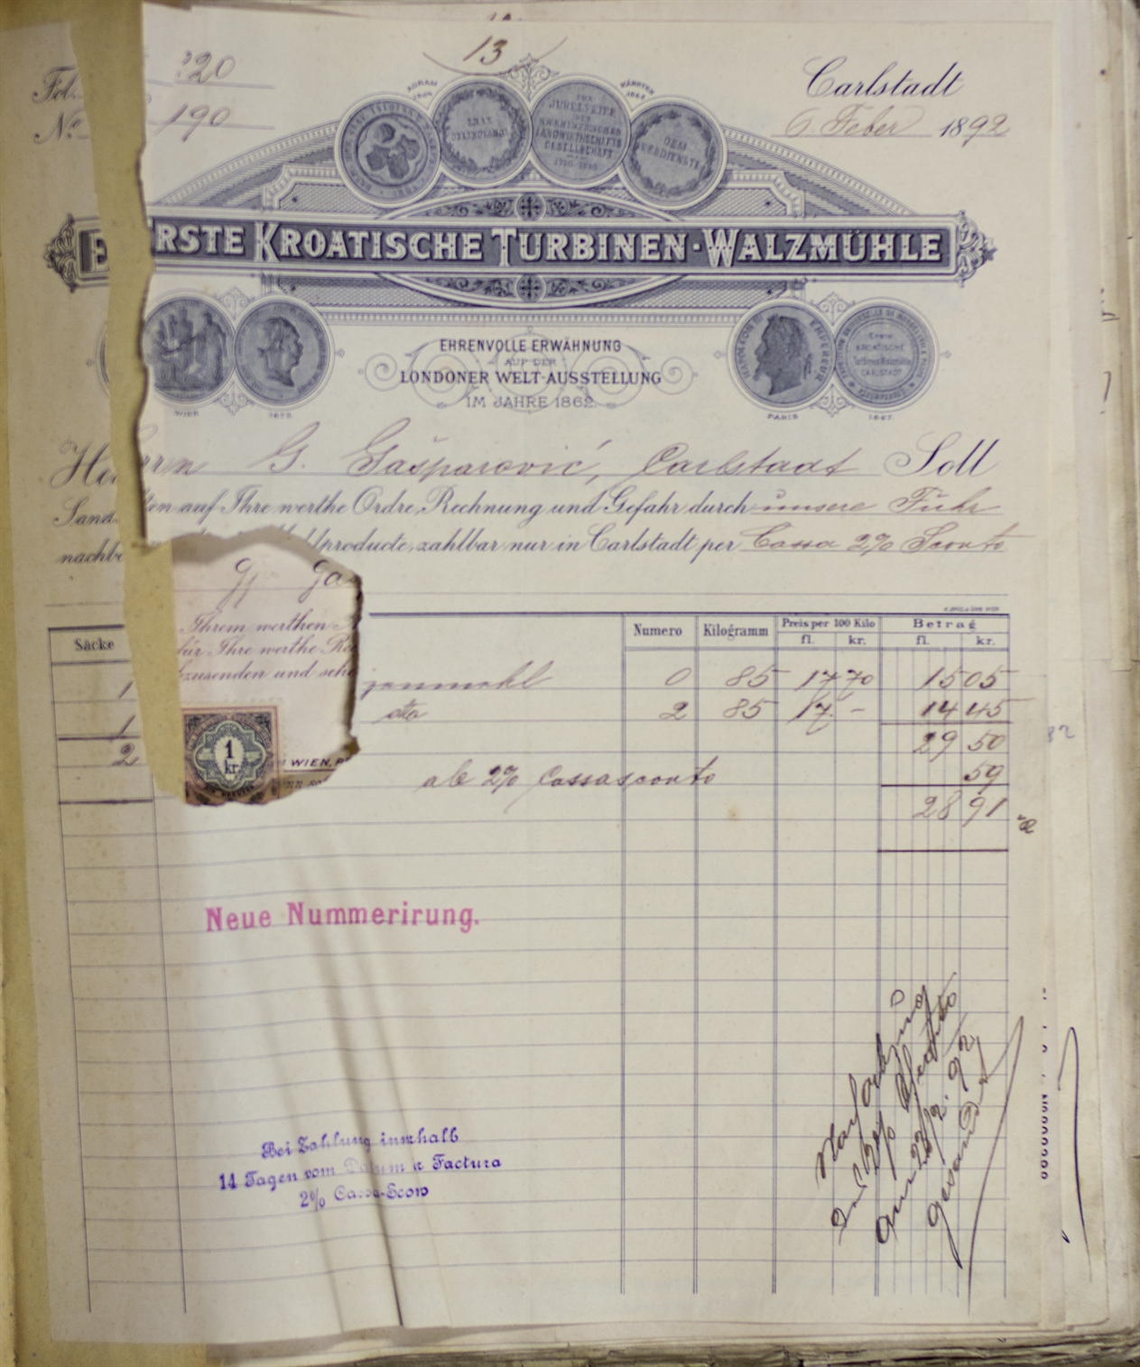 13
Fol. 320
No. 190
Carlstadt
6 Feber 1892
AGRAM
KÄRNTEN
ERSTE KROATISCHE TURBINEN-WALZMÜHLE
EHRENVOLLE ERWÄHNUNG
AUF DER
LONDONER WELT-AUSSTELLUNG
IM JAHRE 1862
WIEN 1873.
PARIS 1867.
NAPOLEON III EMPEREUR
ERSTE KROATISCHE Turbinen Walzmühle CARLSTADT
Herrn G. Gašparović, Carlstadt Soll
Sand ten auf Ihre werthe Ordre, Rechnung und Gefahr durch unsere Fuhr
nachb lproducte, zahlbar nur in Carlstadt per Cassa 2% Sconto
G. Ga
Ihrem werthen
für Ihre werthe Re
zusenden und sehe
1 kr.
WIEN,
Säcke Numero Kilogramm Preis per 100 Kilo Betrag
fl. kr. fl. kr.
1 0 85 17 70 15 05
1 dto 2 85 17 - 14 45
2 29 50
ab 2% Cassasconto 59
28 91
Neue Nummerirung.
Bei Zahlung innerhalb
14 Tagen vom Datum Factura
2% Cassa-Scow
2%
am 22/2. 92